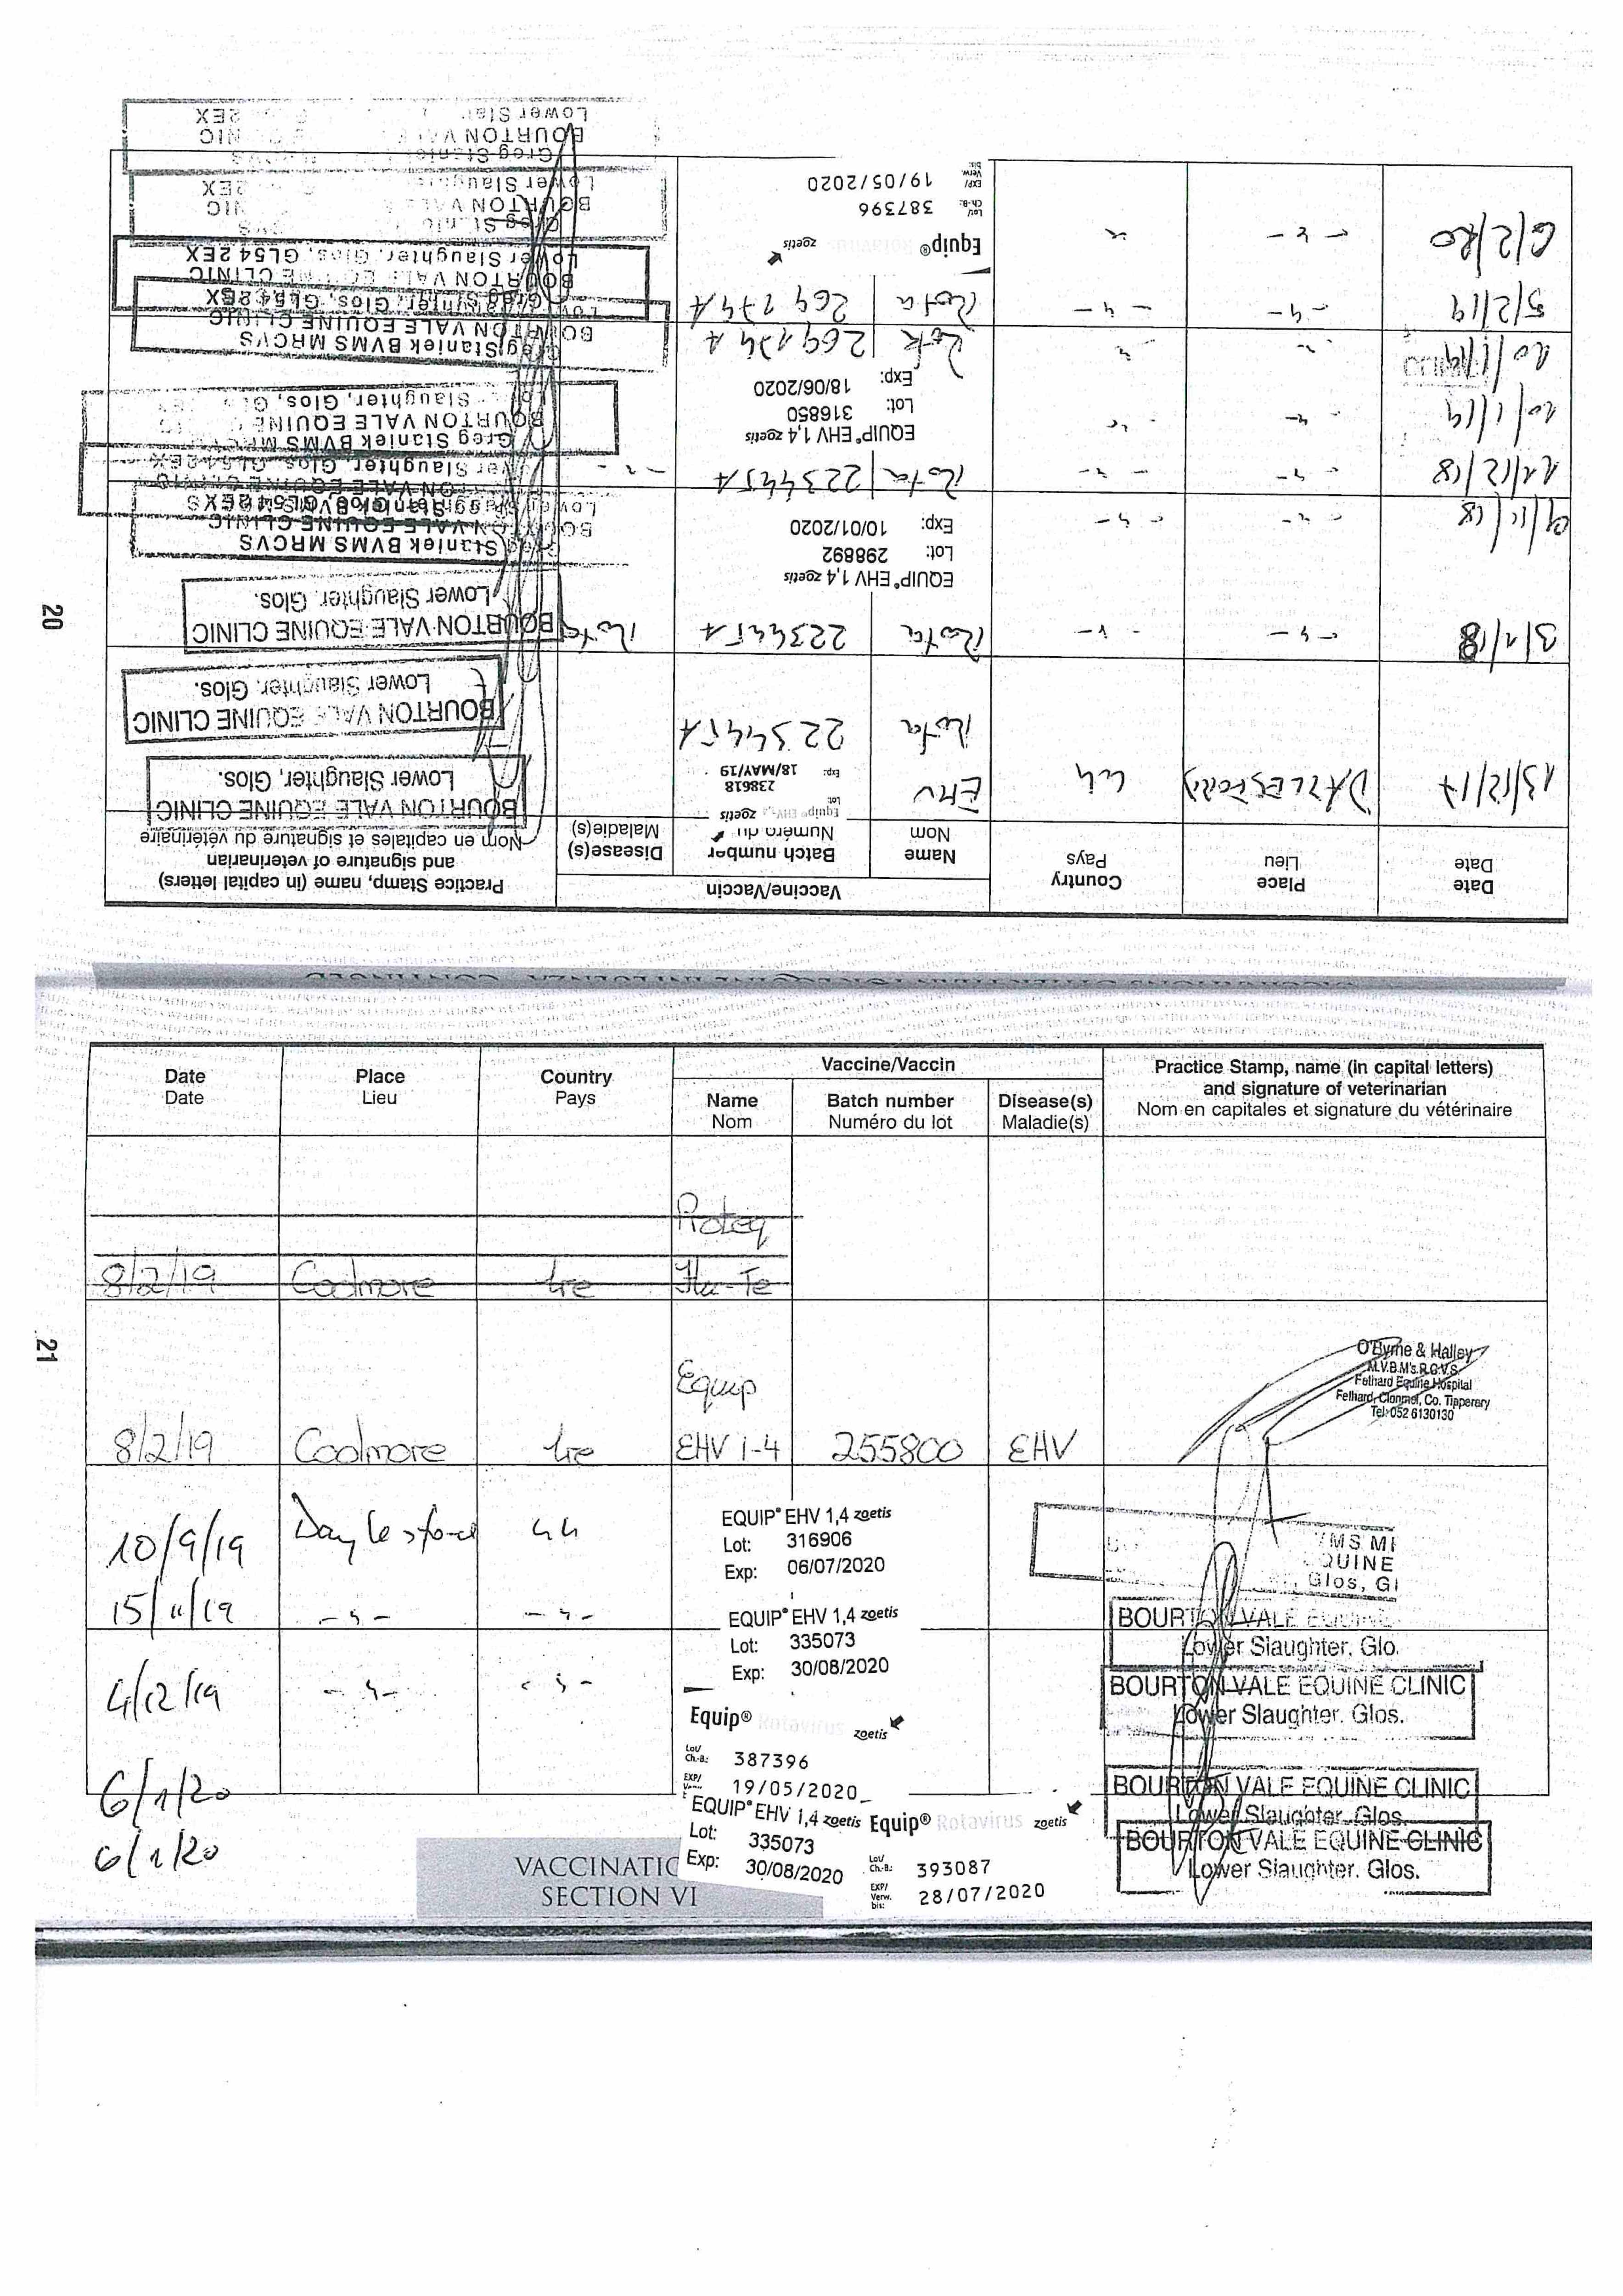 20
Date
Date
Place
Lieu
Country
Pays
Vaccine/Vaccin
Name
Nom
Batch number
Numéro du
Disease(s)
Maladie(s)
Practice Stamp, name (in capital letters)
and signature of veterinarian
Nom en capitales et signature du vétérinaire
13/12/17 DAYLESFORD EHV
Equip EHV1,4 zoetis
Lot 238618
Exp: 18/MAY/19
BOURTON VALE EQUINE CLINIC
Lower Slaughter, Glos.
Rota 223445A
BOURTON VALE EQUINE CLINIC
Lower Slaughter, Glos.
3/1/18 Rota 223445A Rota
BOURTON VALE EQUINE CLINIC
Lower Slaughter, Glos.
9/11/18
EQUIP® EHV 1,4 zoetis
Lot: 298892
Exp: 10/01/2020
Greg Staniek BVMS MRCVS
BOURTON VALE EQUINE CLINIC
11/12/18 Rota 223445A
Lower Slaughter, Glos, GL54 2EX
10/1/19
EQUIP® EHV 1,4 zoetis
Lot: 316850
Exp: 18/06/2020
Greg Staniek BVMS MRCVS
BOURTON VALE EQUINE
Lower Slaughter, Glos,
10/1/19 Rota 269174A
Greg Staniek BVMS MRCVS
BOURTON VALE EQUINE CLINIC
Lower Slaughter, Glos, GL54 2EX
5/2/19 Rota 269174A
BOURTON VALE EQUINE CLINIC
Lower Slaughter, Glos, GL54 2EX
6/2/20
Equip® Rotavirus zoetis
Lot/ Ch.-B.: 387396
EXP/ Verw. bis: 19/05/2020
BOURTON VALE
Lower Slaughter 2EX
Greg Staniek
BOURTON VA NIC
Lower Sla 2EX
21
Date
Date
Place
Lieu
Country
Pays
Vaccine/Vaccin
Name
Nom
Batch number
Numéro du lot
Disease(s)
Maladie(s)
Practice Stamp, name (in capital letters)
and signature of veterinarian
Nom en capitales et signature du vétérinaire
Proteq
8/2/19 Coolmore Ire Flu-Te
Equip
8/2/19 Coolmore Ire EHV 1-4 255800 EHV
O'Byrne & Halley
M.V.B.M's.R.C.V.S.
Fethard Equine Hospital
Fethard, Clonmel, Co. Tipperary
Tel: 052 6130130
10/9/19 Daylesford
EQUIP® EHV 1,4 zoetis
Lot: 316906
Exp: 06/07/2020
VMS MR
QUINE
Glos, Gl
15/11/19
EQUIP® EHV 1,4 zoetis
Lot: 335073
Exp: 30/08/2020
BOURTON VALE EQUINE
Lower Slaughter, Glo.
4/12/19
Equip® Rotavirus zoetis
Lot/ Ch.-B.: 387396
EXP/ Verw. 19/05/2020
BOURTON VALE EQUINE CLINIC
Lower Slaughter. Glos.
6/1/20
EQUIP® EHV 1,4 zoetis
Lot: 335073
Exp: 30/08/2020
BOURTON VALE EQUINE CLINIC
Lower Slaughter. Glos.
6/1/20
Equip® Rotavirus zoetis
Lot/ Ch.-B.: 393087
EXP/ Verw. bis: 28/07/2020
BOURTON VALE EQUINE CLINIC
Lower Slaughter. Glos.
VACCINATIO
SECTION VI